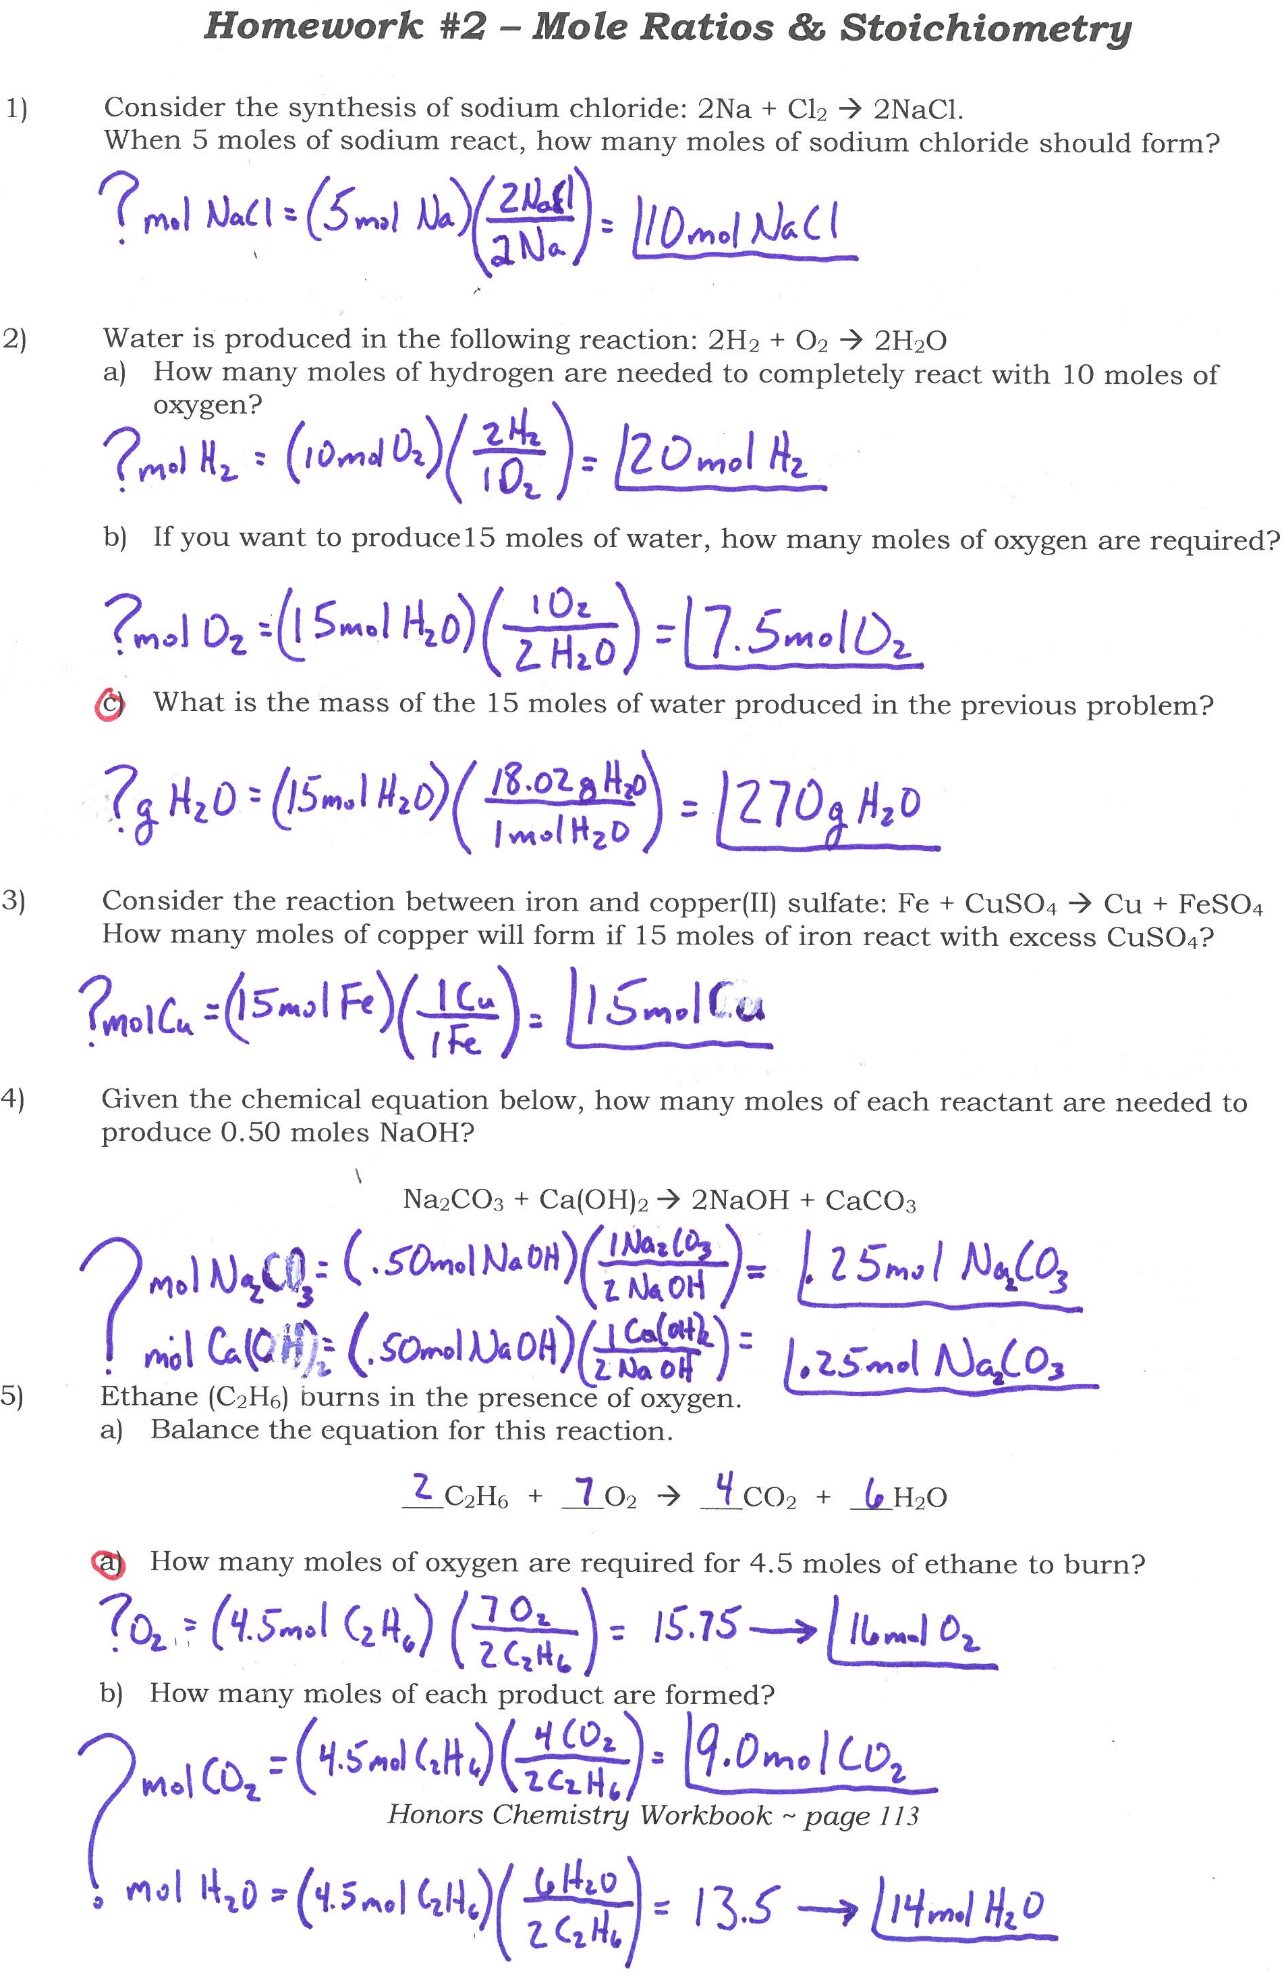 Homework #2 – Mole Ratios & Stoichiometry
1) Consider the synthesis of sodium chloride: 2Na + Cl₂ → 2NaCl.
When 5 moles of sodium react, how many moles of sodium chloride should form?
? mol NaCl = (5 mol Na)(2NaCl/2Na) = 10 mol NaCl
2) Water is produced in the following reaction: 2H₂ + O₂ → 2H₂O
a) How many moles of hydrogen are needed to completely react with 10 moles of
oxygen?
? mol H₂ = (10 mol O₂)(2H₂/1O₂) = 20 mol H₂
b) If you want to produce15 moles of water, how many moles of oxygen are required?
? mol O₂ = (15 mol H₂O)(1O₂/2H₂O) = 7.5 mol O₂
c) What is the mass of the 15 moles of water produced in the previous problem?
? g H₂O = (15 mol H₂O)(18.02 g H₂O/1 mol H₂O) = 270 g H₂O
3) Consider the reaction between iron and copper(II) sulfate: Fe + CuSO₄ → Cu + FeSO₄
How many moles of copper will form if 15 moles of iron react with excess CuSO₄?
? mol Cu = (15 mol Fe)(1Cu/1Fe) = 15 mol Cu
4) Given the chemical equation below, how many moles of each reactant are needed to
produce 0.50 moles NaOH?
Na₂CO₃ + Ca(OH)₂ → 2NaOH + CaCO₃
? mol Na₂CO₃ = (.50 mol NaOH)(1Na₂CO₃/2NaOH) = .25 mol Na₂CO₃
mol Ca(OH)₂ = (.50 mol NaOH)(1Ca(OH)₂/2NaOH) = .25 mol Na₂CO₃
5) Ethane (C₂H₆) burns in the presence of oxygen.
a) Balance the equation for this reaction.
2 C₂H₆ + 7 O₂ → 4 CO₂ + 6 H₂O
a) How many moles of oxygen are required for 4.5 moles of ethane to burn?
? O₂ = (4.5 mol C₂H₆)(7O₂/2C₂H₆) = 15.75 → 16 mol O₂
b) How many moles of each product are formed?
? mol CO₂ = (4.5 mol C₂H₆)(4CO₂/2C₂H₆) = 9.0 mol CO₂
Honors Chemistry Workbook ~ page 113
mol H₂O = (4.5 mol C₂H₆)(6H₂O/2C₂H₆) = 13.5 → 14 mol H₂O